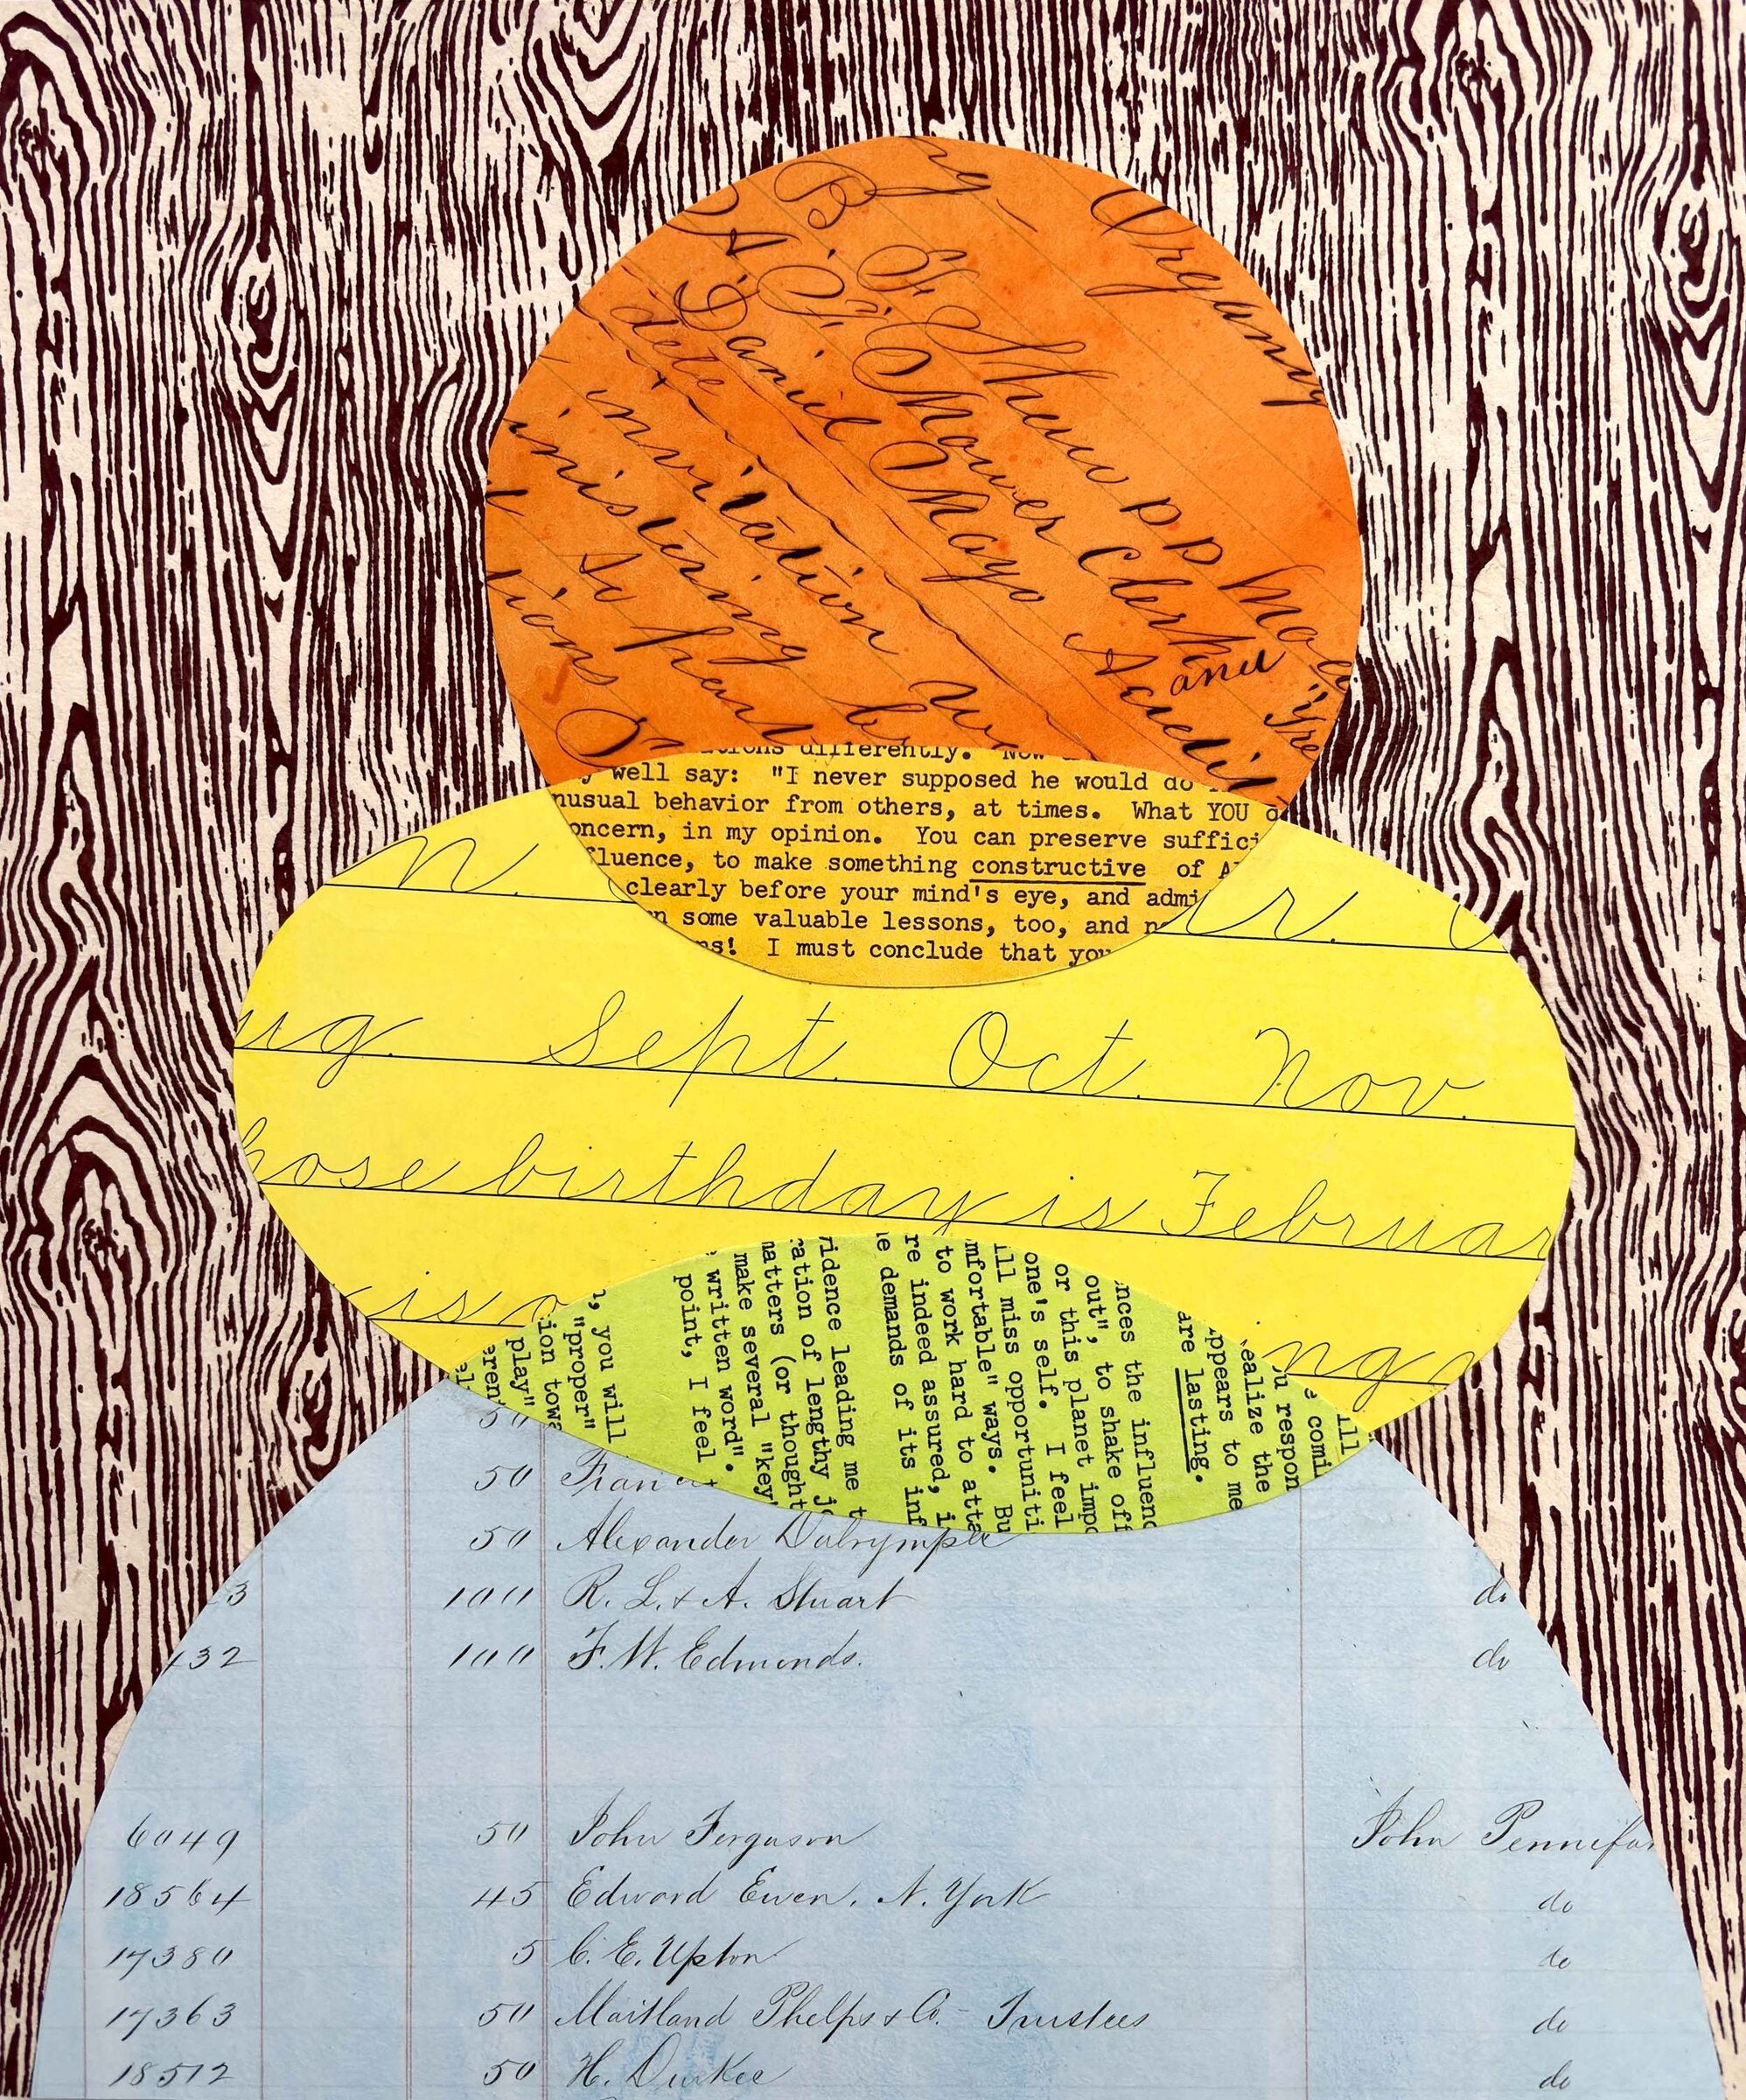 ng -
Organiz
B. F. Shaw P P
A. F. Mower Clerk
Daniel Mayo
and
dele
invitation
inistering
So
tions
ations differently. Now
y well say: "I never supposed he would do
nusual behavior from others, at times. What YOU d
oncern, in my opinion. You can preserve suffici
fluence, to make something constructive of A
clearly before your mind's eye, and admi
n some valuable lessons, too, and n
ns! I must conclude that you
n. r.
ug. Sept. Oct. Nov.
hose birthday is Februar
is a
ng
ill
e comi
ou respon
ealize the
ppears to me
are lasting.
nces the influenc
out", to shake off
or this planet impo
one's self. I feel
ill miss opportuniti
mfortable" ways. Bu
to work hard to atta
re indeed assured, i
e demands of its inf
vidence leading me t
ration of lengthy j
matters (or thought
make several "key
written word".
point, I feel
, you will
"proper"
ion towa
play"
eren
el
50
50 Franci
50 Alexander Dalrymple
3 100 R. L. & A. Stuart do
132 100 F. W. Edmonds. do
6049 50 John Ferguson John Pennifa
18564 45 Edward Ewen. N. York do
17380 5 C. E. Upton do
17363 50 Maitland Phelps & Co - Trustees do
18512 50 H. Durkee do